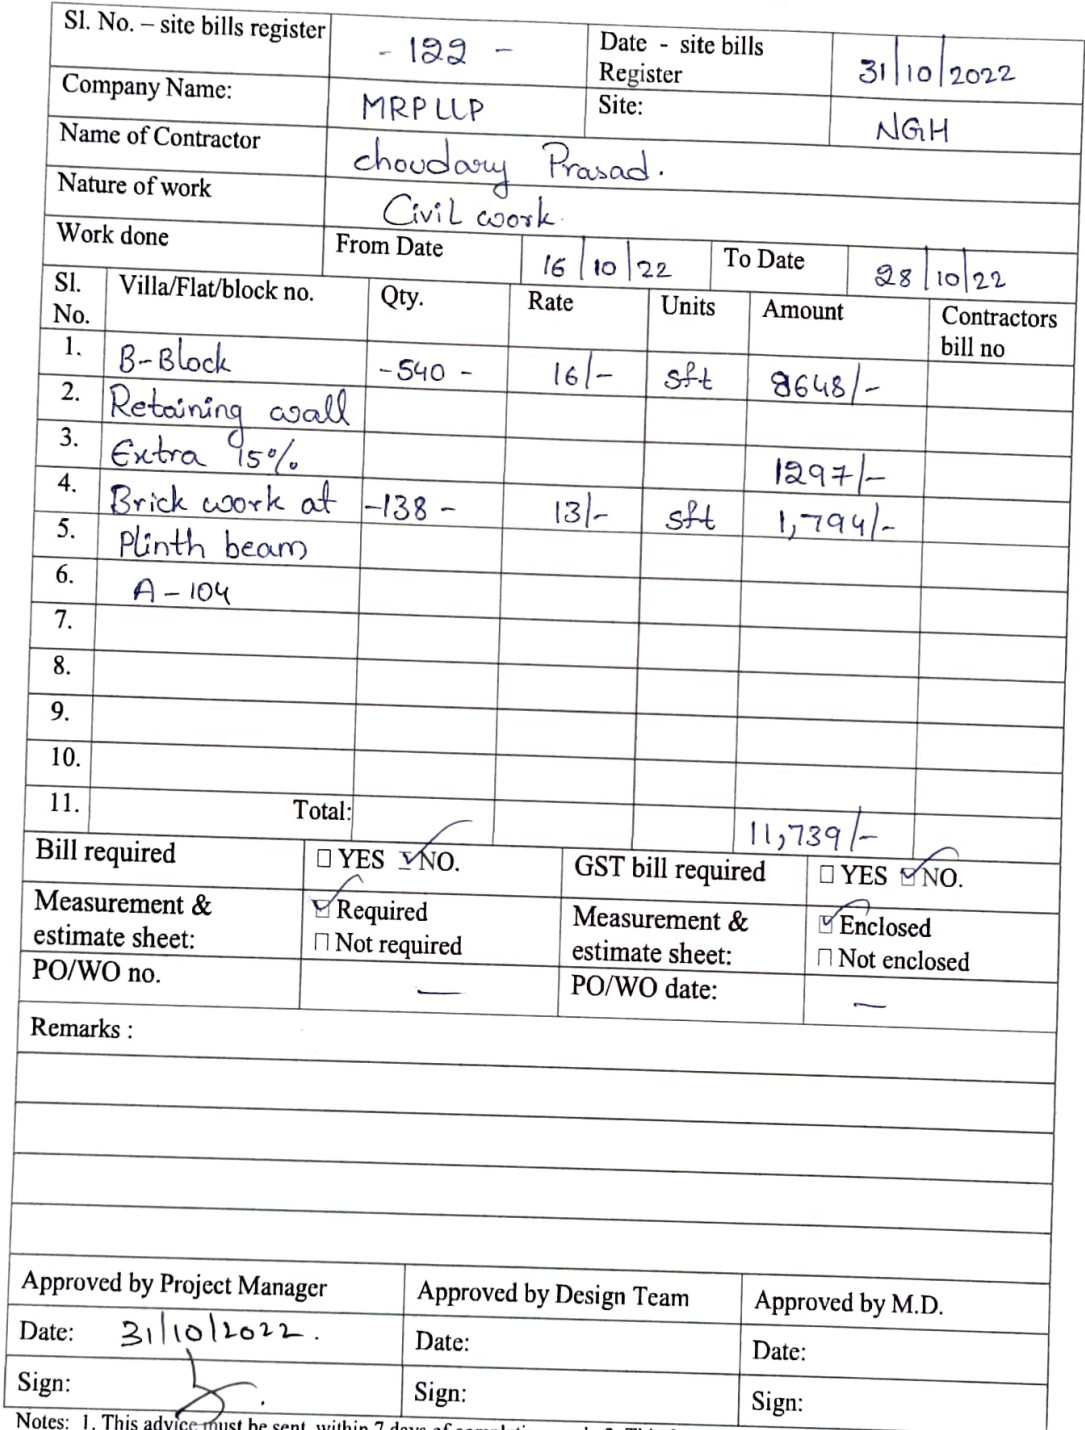 Sl. No. – site bills register - 122 - Date - site bills Register 31/10/2022
Company Name: MRPLLP Site: NGH
Name of Contractor choudary Prasad.
Nature of work Civil work.
Work done From Date 16/10/22 To Date 28/10/22
Sl. No. Villa/Flat/block no. Qty. Rate Units Amount Contractors bill no
1. B-Block -540- 16/- sft 8648/-
2. Retaining wall
3. Extra 15% 1297/-
4. Brick work at -138- 13/- sft 1,794/-
5. Plinth beam
6. A-104
7.
8.
9.
10.
11. Total: 11,739/-
Bill required YES NO. GST bill required YES NO.
Measurement & estimate sheet: Required Not required Measurement & estimate sheet: Enclosed Not enclosed
PO/WO no. — PO/WO date: —
Remarks :
Approved by Project Manager Approved by Design Team Approved by M.D.
Date: 31/10/2022. Date: Date:
Sign: Sign: Sign:
Notes: 1. This advice must be sent within 7 days of